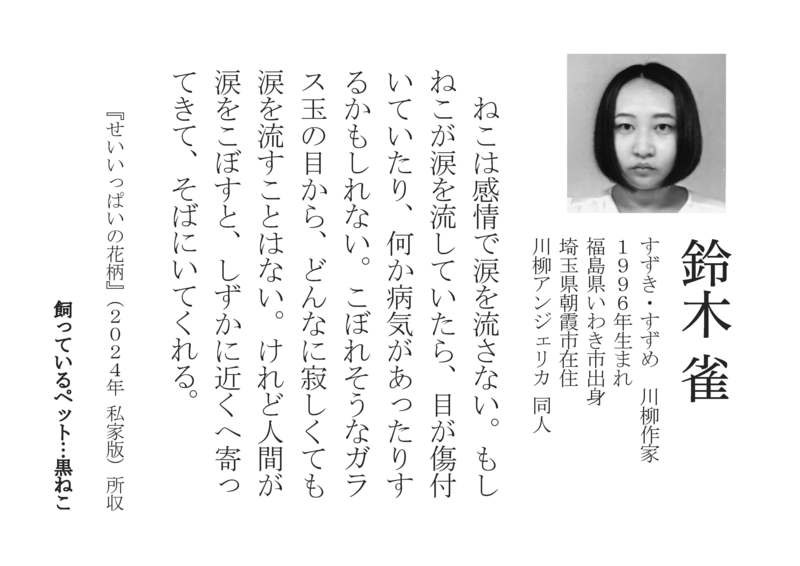 鈴木 雀
すずき・すずめ　川柳作家
1996年生まれ
福島県いわき市出身
埼玉県朝霞市在住
川柳アンジェリカ 同人
ねこは感情で涙を流さない。もし
ねこが涙を流していたら、目が傷付
いていたり、何か病気があったりす
るかもしれない。こぼれそうなガラ
ス玉の目から、どんなに寂しくても
涙を流すことはない。けれど人間が
涙をこぼすと、しずかに近くへ寄っ
てきて、そばにいてくれる。
『せいいっぱいの花柄』（2024年 私家版）所収
飼っているペット…黒ねこ